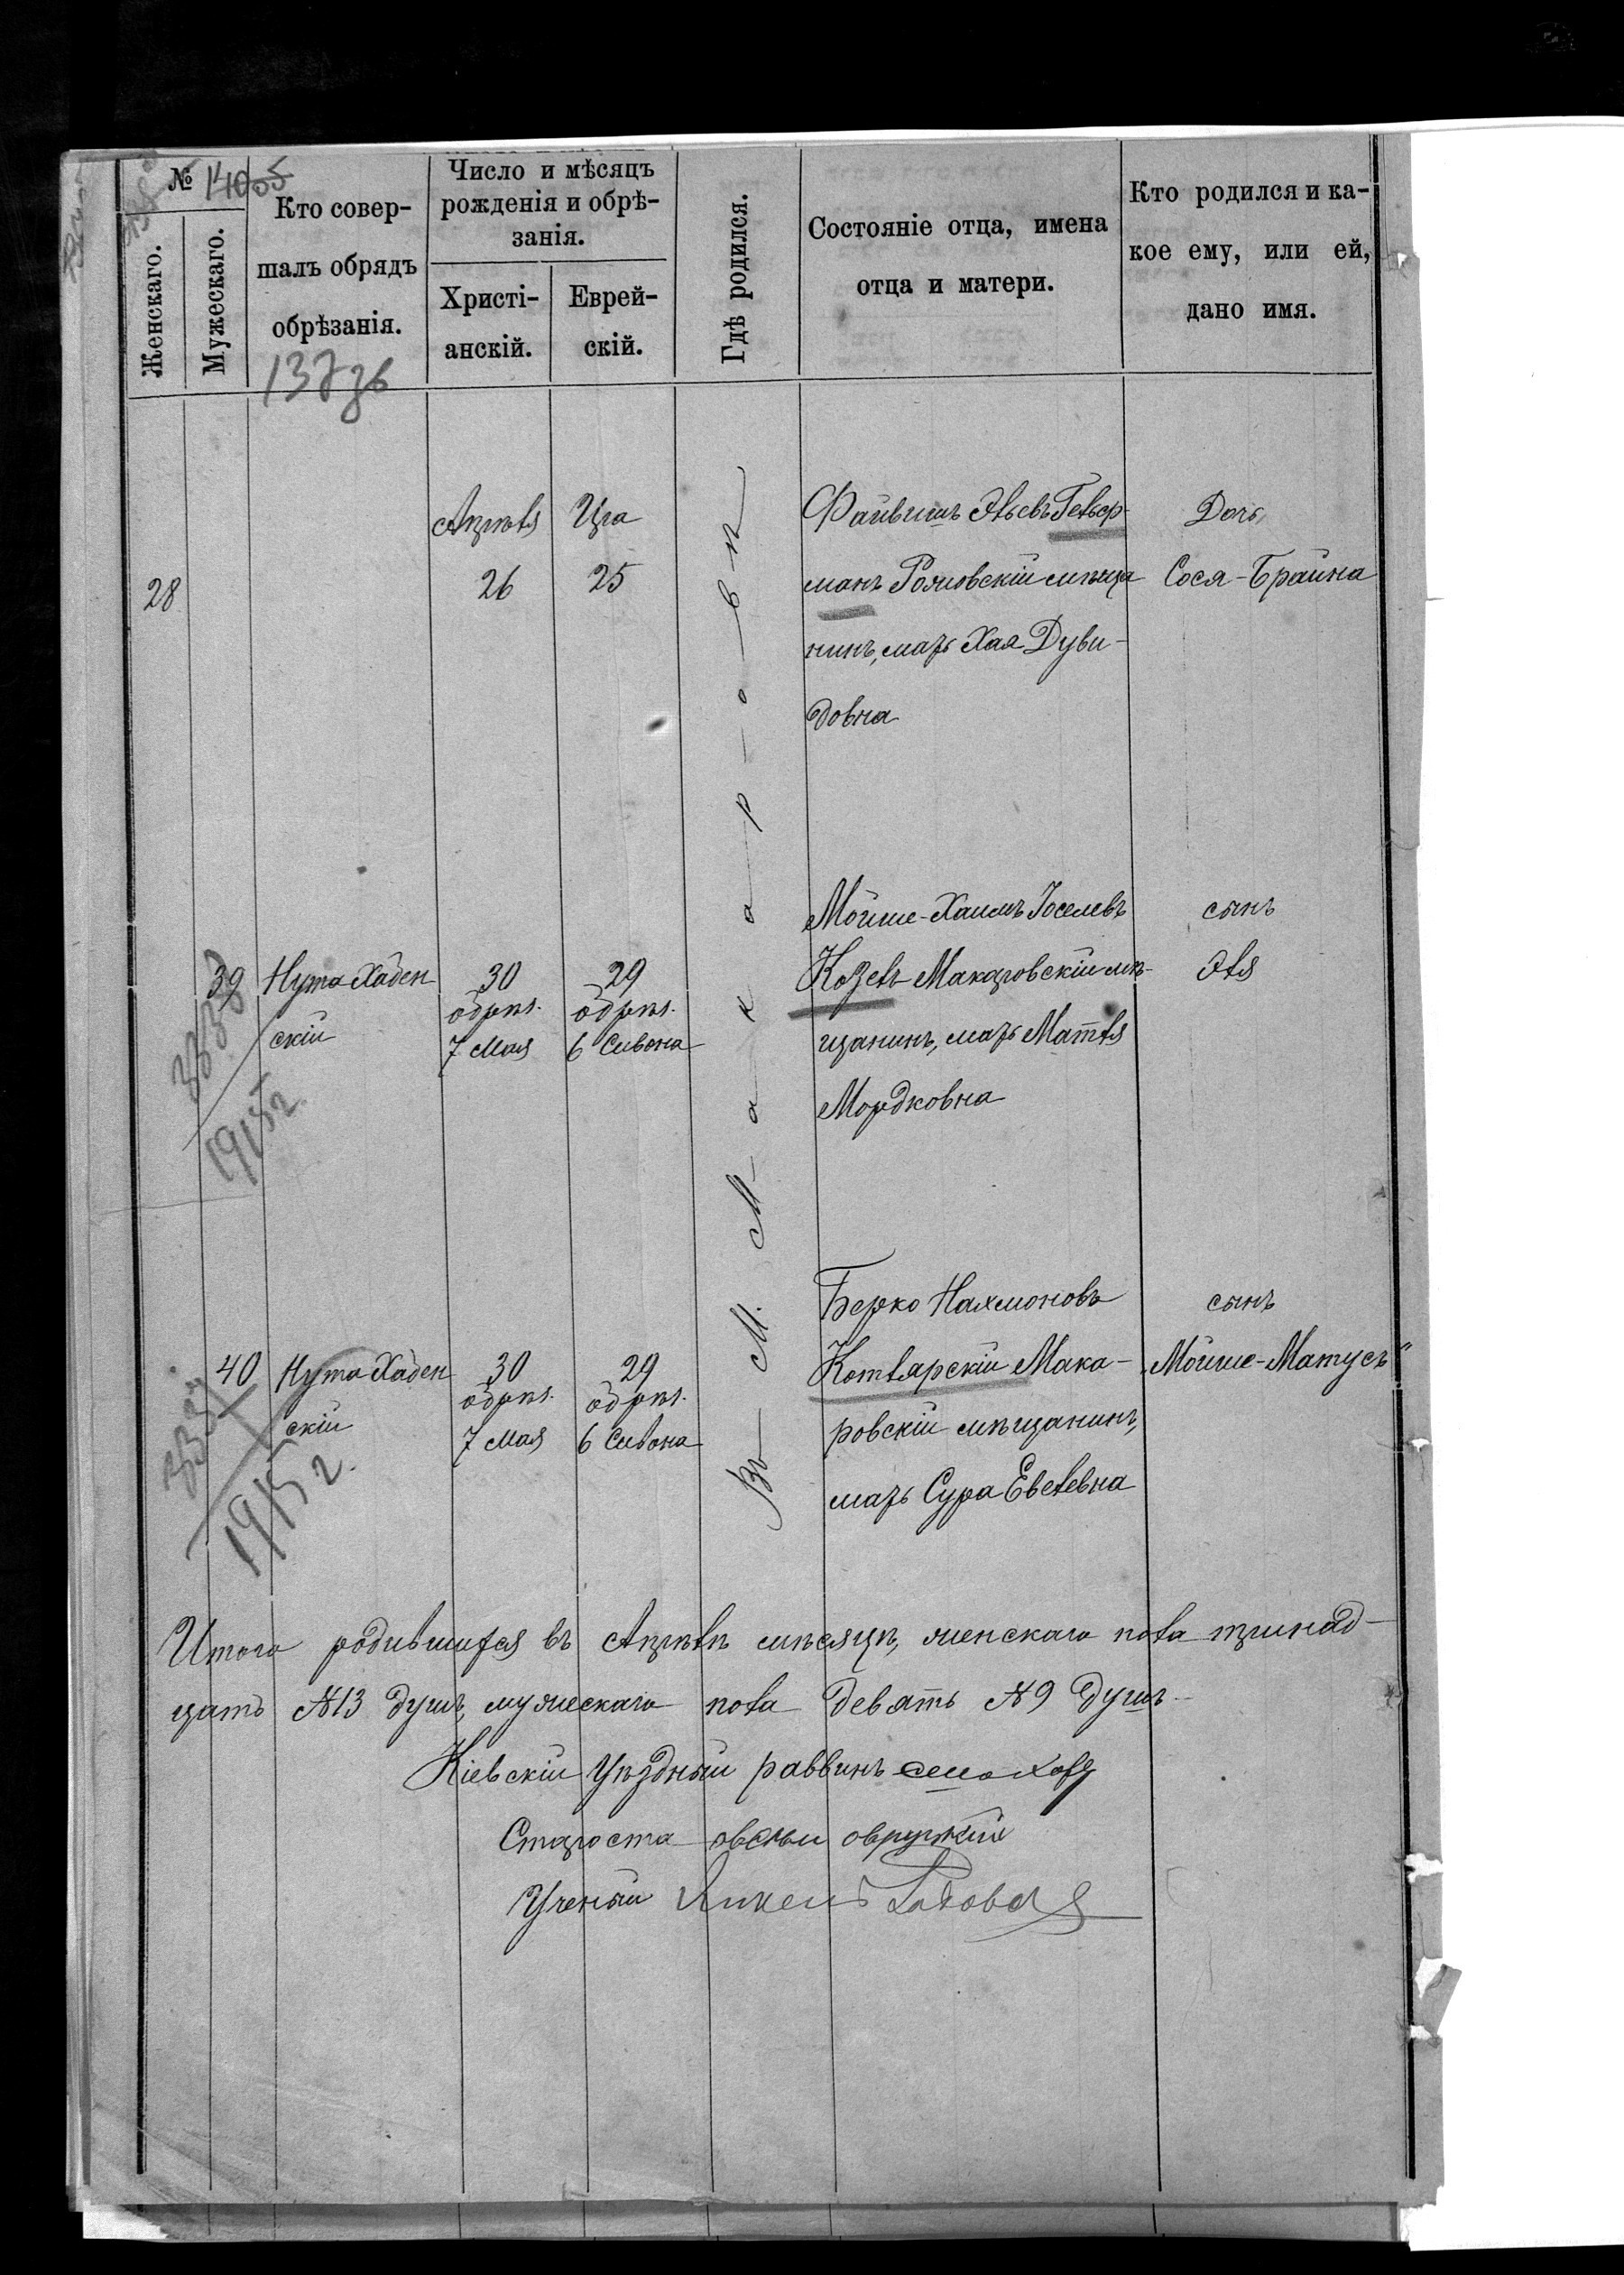 № 14005
Женскаго.
Мужескаго.
Кто совер-
шалъ обрядъ
обрѣзанія.
137 зв
Число и мѣсяцъ
рожденія и обрѣ-
занія.
Христі-
анскій.
Еврей-
скій.
Гдѣ родился.
Состояніе отца, имена
отца и матери.
Кто родился и ка-
кое ему, или ей,
дано имя.
Въ М. Макаровѣ
28
Апрѣля
26
Ира
25
Файвишъ Эльевъ Гельфр-
манъ Рожновскій мѣща
нинъ, мать Хая Дуви-
довна
Дочь
Сося-Брайна
39
Нута Ходен
скій
30
обрѣз.
7 Мая
29
обрѣз.
6 Сивона
Мойше-Хаимъ Іоселевъ
Козелъ Макаровскій мѣ-
щанинъ, мать Матля
Мордковна
сынъ
Эля
1915 г.
40
Нута Ходен
скій
30
обрѣз.
7 Мая
29
обрѣз.
6 Сивона
Берко Нахмоновъ
Котлярскій Мака-
ровскій мѣщанинъ,
мать Сура Евелевна
сынъ
„Мойше-Матусъ"
1915 г.
Итого родившихся въ Апрѣлѣ мѣсяцѣ, женскаго пола тринад-
цать №13 душъ, мужескаго пола девять №9 душъ
Кіевскій Уѣздный раввинъ
Староста овсѣи овруцкій
Ученый Янкель